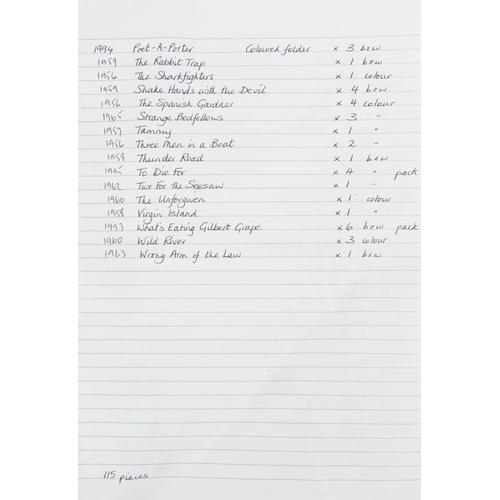 1994 Pret-A-Porter Coloured folder x 3 b&w
1959 The Rabbit Trap x 1 b&w
1956 The Sharkfighters x 1 colour
1959 Shake Hands with the Devil x 4 b&w
1956 The Spanish Gardner x 4 colour
1965 Strange Bedfellows x 3 "
1957 Tammy x 1 "
1956 Three Men in a Boat x 2 "
1958 Thunder Road x 1 b&w
1995 To Die For x 4 " pack
1962 Two For the Seesaw x 1 "
1960 The Unforgiven x 1 colour
1958 Virgin Island x 1 "
1993 What's Eating Gilbert Grape x 6 b&w pack
1960 Wild River x 3 colour
1963 Wrong Arm of the Law x 1 b&w
115 pieces